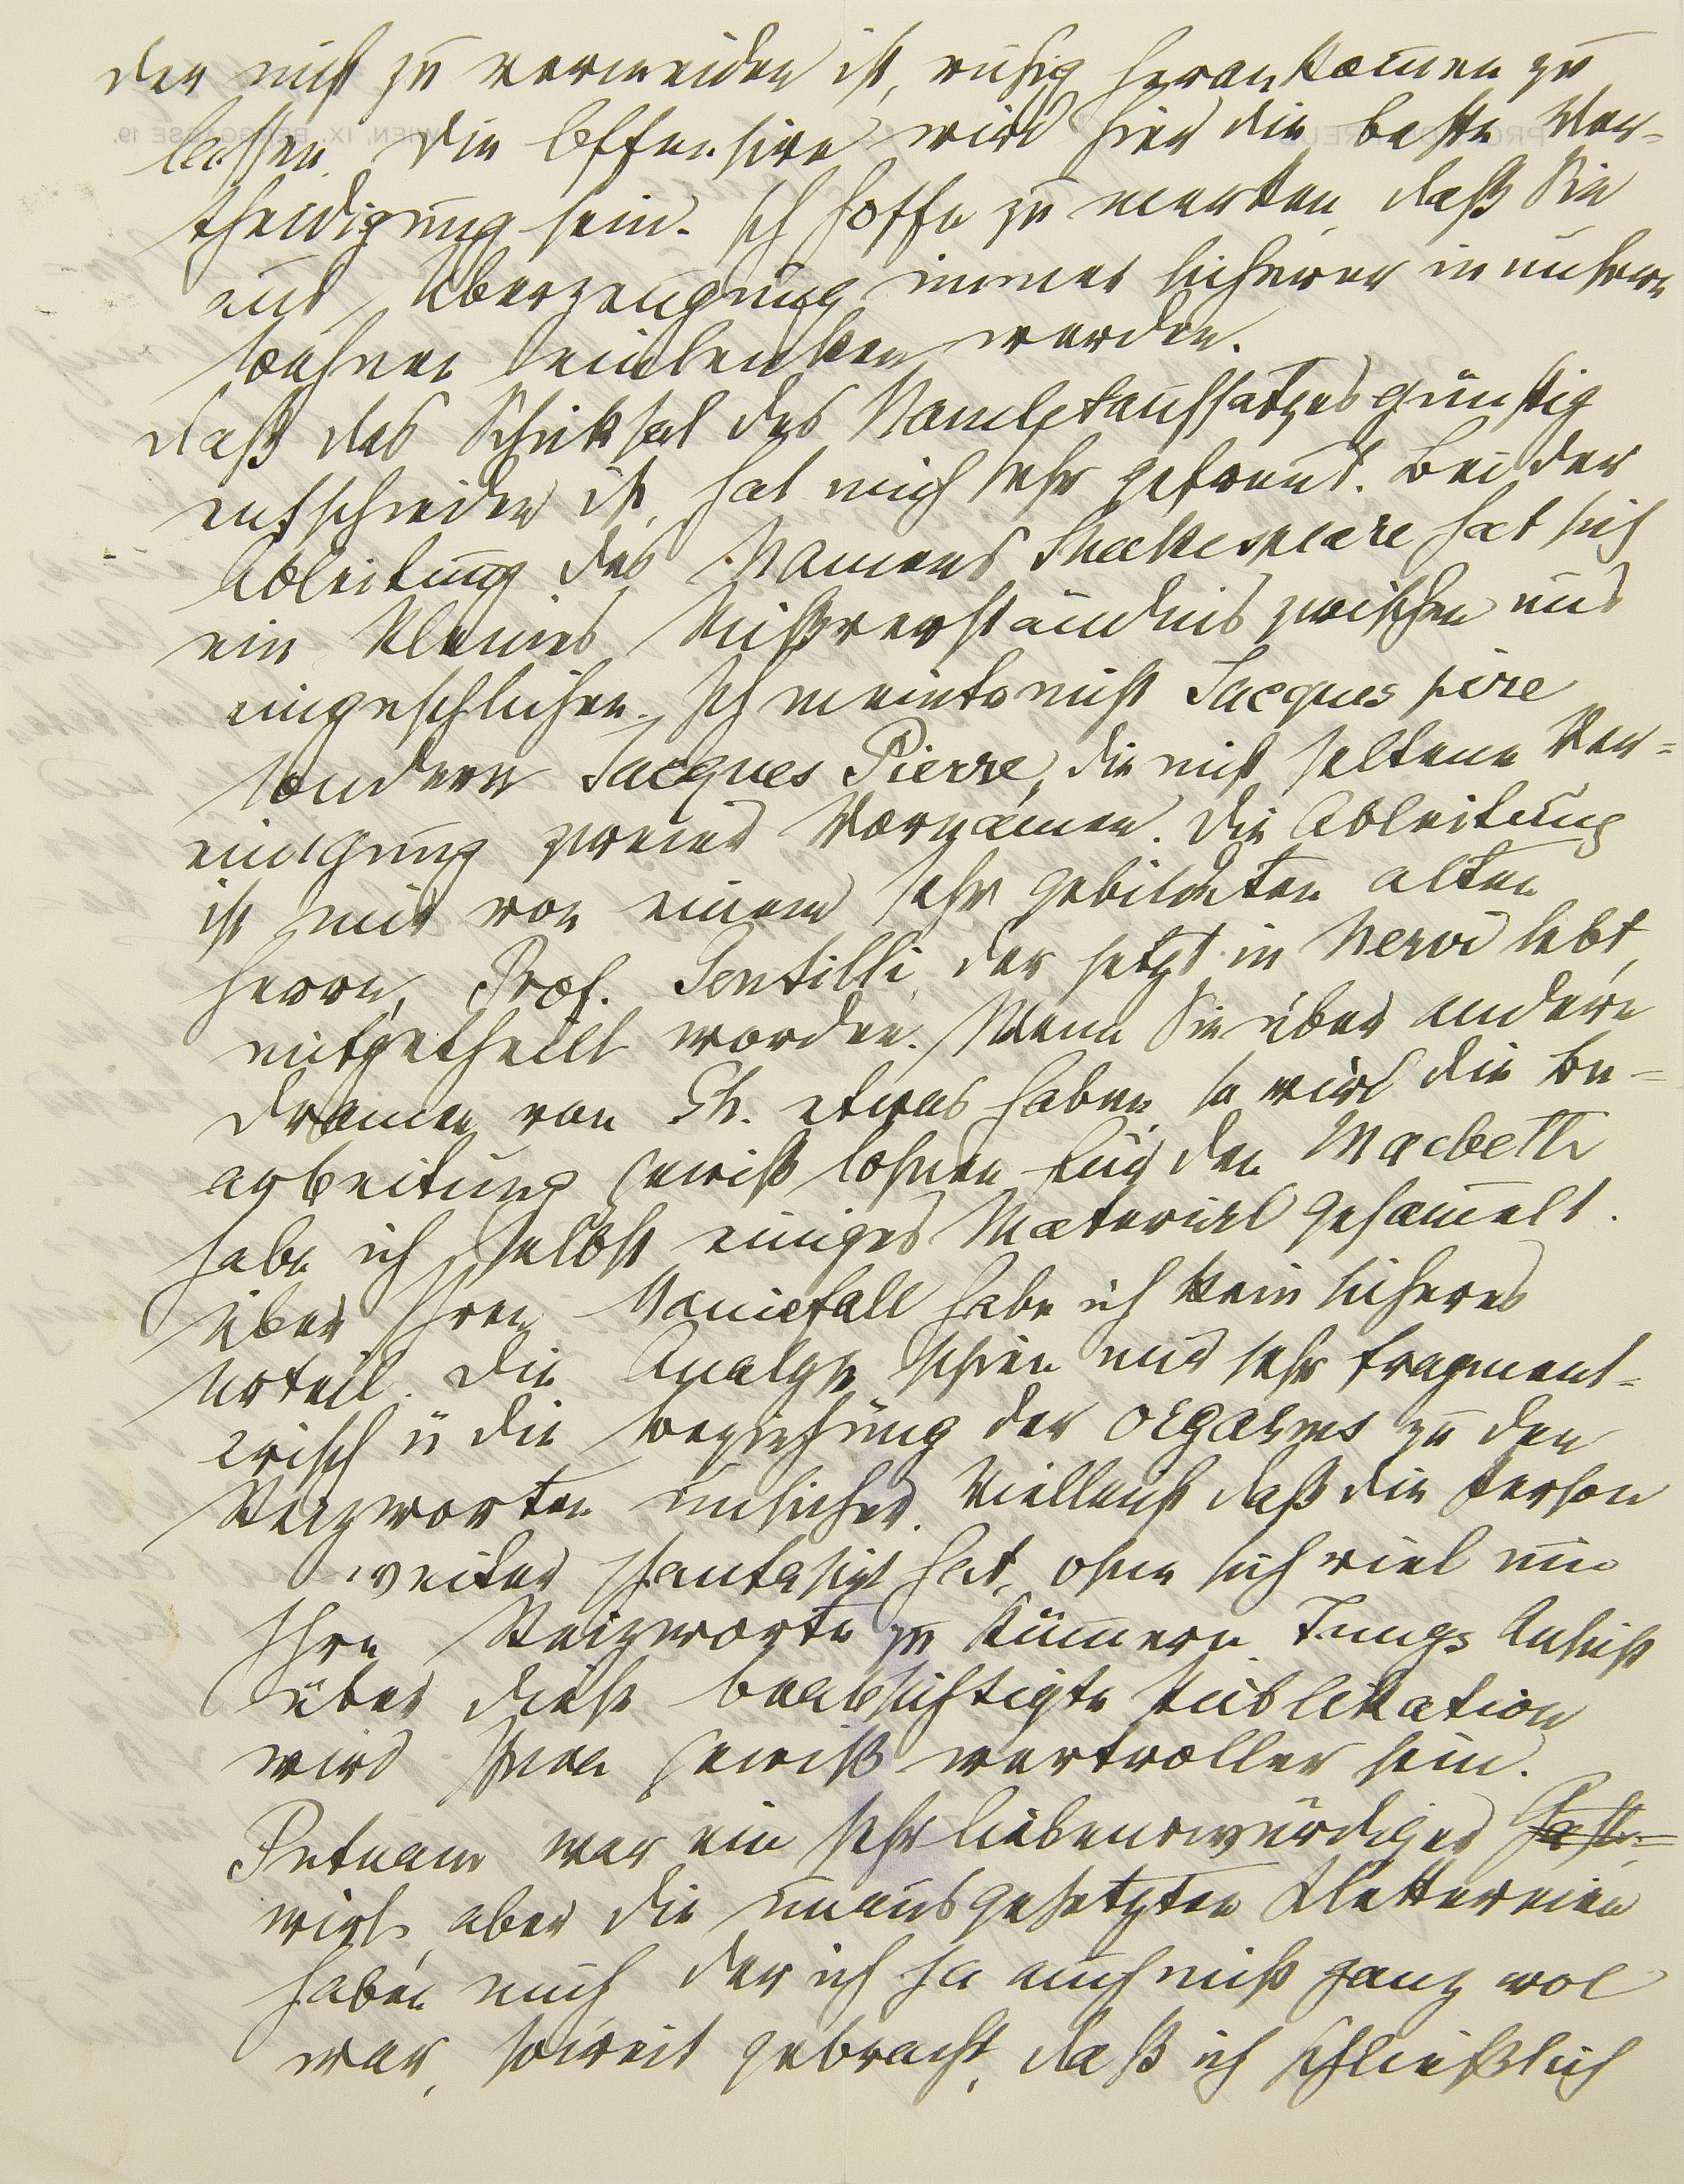 der nicht zu vermeiden ist, ruhig herankom̅en zu
lassen. Die Offensive wird hier die beste Ver-
theidigung sein. Ich hoffe zu merken, daß Sie
aus Überzeugung immer sicherer in unsere
Bahnen einlenken werden.
Daß das Schicksal des Hamletaufsatzes günstig
entschieden ist, hat mich sehr gefreut. Bei der
Ableitung des Namens Shakespeare hat sich
ein kleines Mißverständnis zwischen uns
eingeschlichen. Ich meinte nicht Jacques père
sondern Jacques Pierre, die nicht seltene Ver-
einigung zweier Vornamen. Die Ableitung
ist mir von einem sehr gebildeten alten
Herrn, Prof. Gentilli, der jetzt in Nervi lebt,
mitgetheilt worden. Wenn Sie über andere
Dramen von Sh. etwas haben, so wird die Be-
arbeitung gewiß lohnen. Für den Macbeth
habe ich selbst einiges Material gesam̅elt.
Über Ihren Maniefall habe ich kein sicheres
Urteil. Die Analyse schien mir sehr fragment-
arisch u die Beziehung der orgasms zu den
Reizworten unsicher. Vielleicht daß die Person
weiter phantasirt hat, ohne sich viel um
Ihre Reizworte zu küm̅ern. Jungs Ansicht
über diese beabsichtigte Publikation
wird Ihnen gewiß wertvoller sein.
Putnam war ein sehr liebenswürdiger Gast-
wirt, aber die unausgesetzten Klettereien
haben mich, der ich ja auch nicht ganz wol
war, soweit gebracht, daß ich schließlich
PROF. DR. FREUD
WIEN, IX., BERGGASSE 19.